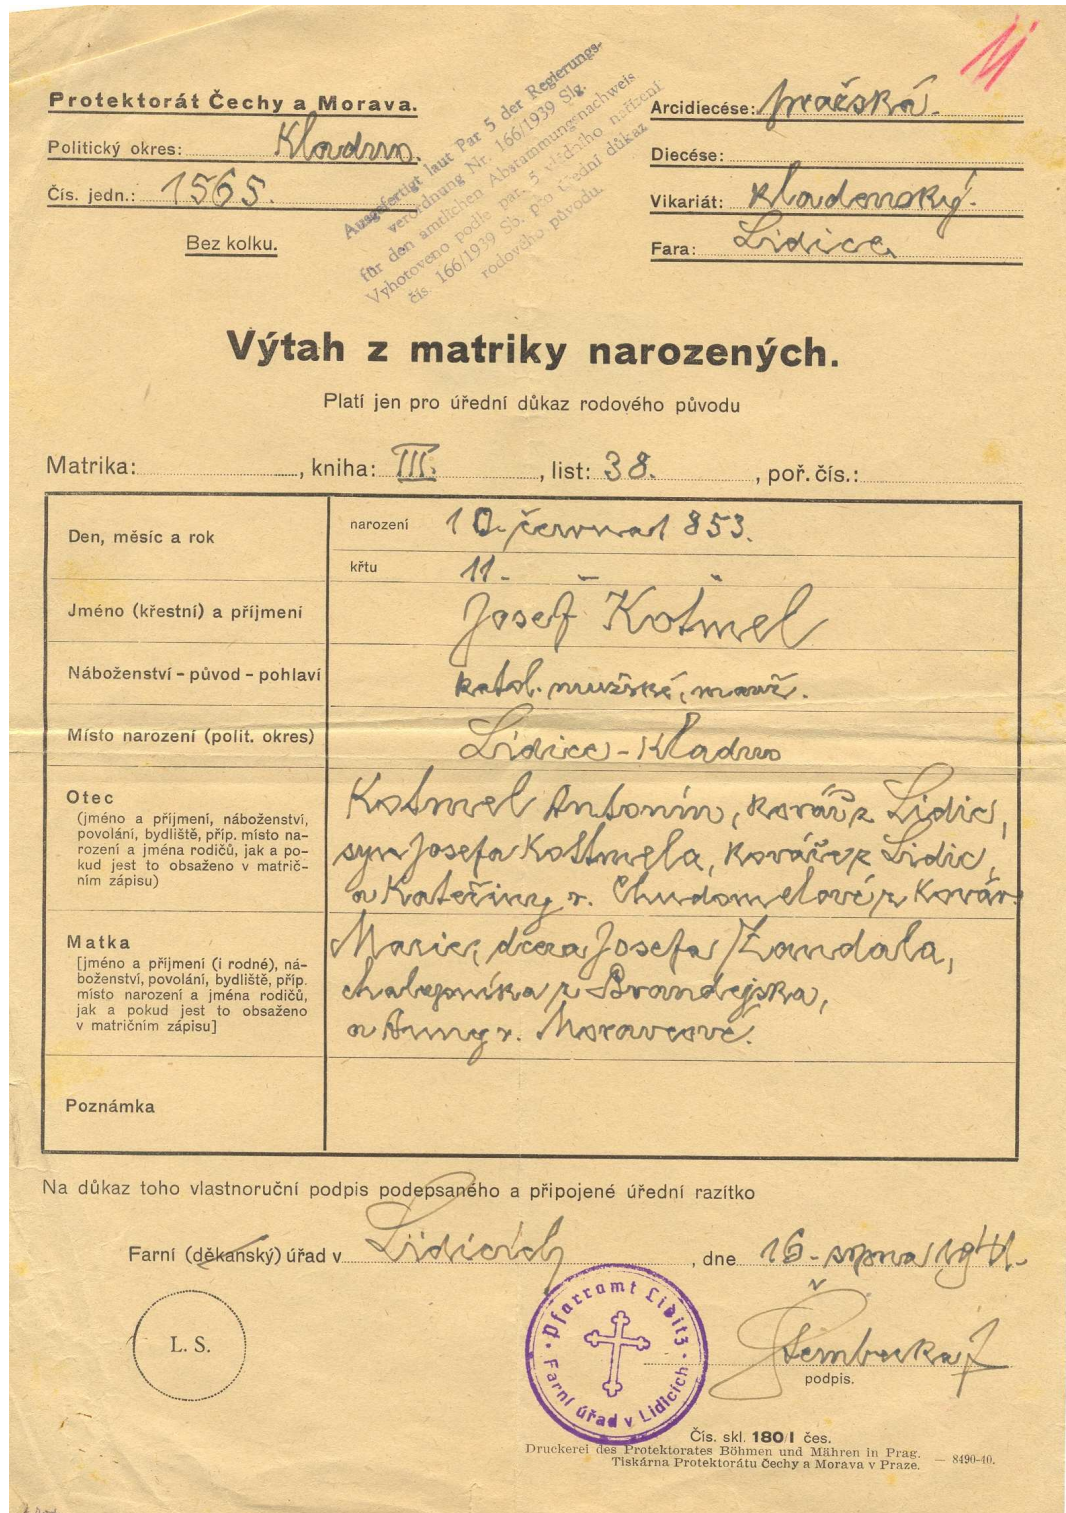 Protektorát Čechy a Morava.
Politický okres: Kladno.
Čís. jedn.: 1565.
Bez kolku.
Ausgefertigt laut Par 5 der Regierungs-
verordnung Nr. 166/1939 Slg.
für den amtlichen Abstammungsnachweis
Vyhotoveno podle par. 5 vládního nařízení
čís. 166/1939 Sb. pro úřední důkaz
rodového původu.
Arcidiecése: pražská.
Diecése:
Vikariát: kladenský.
Fara: Lidice
Výtah z matriky narozených.
Platí jen pro úřední důkaz rodového původu
Matrika: , kniha: III. , list: 38. , poř. čís.:
Den, měsíc a rok
narození 10. června 1853.
křtu 11.
Jméno (křestní) a příjmení Josef Kotmel
Náboženství - původ - pohlaví katol. mužské, manž.
Místo narození (polit. okres) Lidice - Kladno
Otec
(jméno a příjmení, náboženství,
povolání, bydliště, příp. místo na-
rození a jména rodičů, jak a po-
kud jest to obsaženo v matrič-
ním zápisu)
Kotmel Antonín, kovář z Lidic,
syn Josefa Kottmela, kováře z Lidic,
a Kateřiny r. Chudomelové z Kovár
Matka
[jméno a příjmení (i rodné), ná-
boženství, povolání, bydliště, příp.
místo narození a jména rodičů,
jak a pokud jest to obsaženo
v matričním zápisu]
Marie, dcera Josefa Zandala,
chalupníka z Brandejska,
a Anny r. Moravcové.
Poznámka
Na důkaz toho vlastnoruční podpis podepsaného a připojené úřední razítko
Farní (děkanský) úřad v Lidicích , dne 16. srpna 1941.
L. S.
Pfarramt Liditz
Farní úřad v Lidicích
Štemberka
podpis.
Čís. skl. 180/I čes.
Druckerei des Protektorates Böhmen und Mähren in Prag.
Tiskárna Protektorátu Čechy a Morava v Praze. — 8490-40.